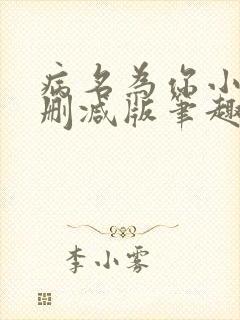 病名为你小
删减版笔趣
李小雾